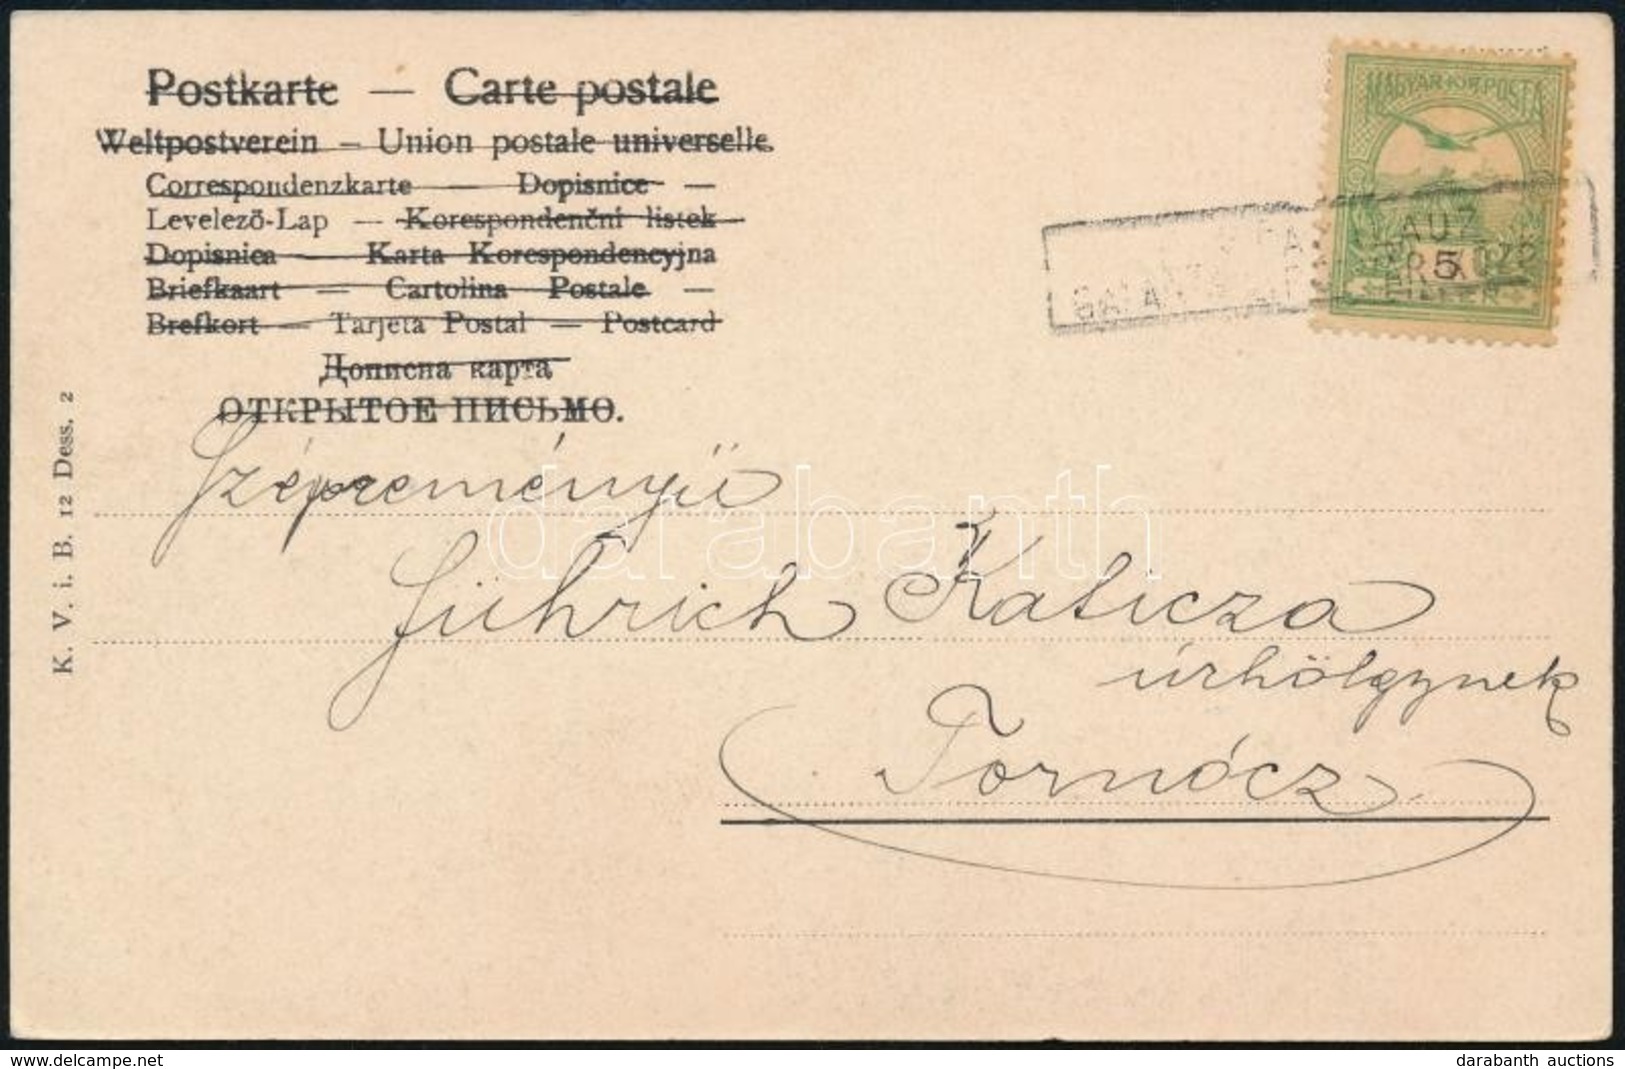 Postkarte — Carte postale
Weltpostverein – Union postale universelle
Correspondenzkarte — Dopisnice —
Levelező-Lap — Korespondenční listek
Dopisnica — Karta Korespondencyjna
Briefkaart — Cartolina Postale —
Brefkort — Tarjeta Postal — Postcard
Дописна карта
ОТКРЫТОЕ ПИСЬМО.
MAGYAR KIR. POSTA
5
K. V. i. B. 12 Dess. 2
Szépreményű
Jührich Katicza
úrhölgynek
Tornócz
darabanth
darabanth auctions